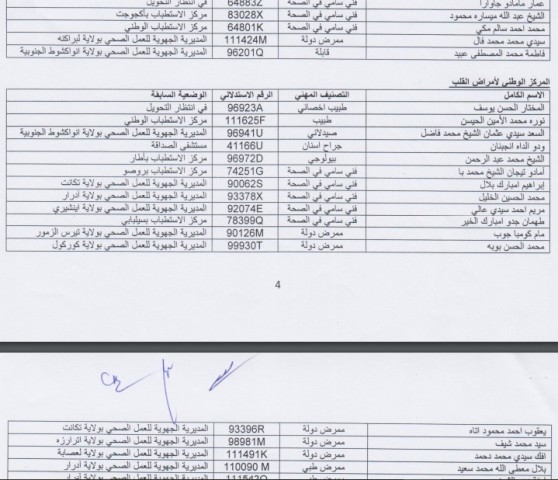 عمار مامادو جاوارا فني سامي في الصحة 64883Z في انتظار التحويل
الشيخ عبد الله ميساره محمود فني سامي في الصحة 83028X مركز الاستطباب بأكجوجت
محمد احمد سالم مكي فني سامي في الصحة 64801K مركز الاستطباب الوطني
سيدي محمد محمد فال ممرض دولة 111424M المديرية الجهوية للعمل الصحي بولاية لبراكنه
فاطمة محمد المصطفى عبيد قابلة 96201Q المديرية الجهوية للعمل الصحي بولاية انواكشوط الجنوبية
المركز الوطني لأمراض القلب
الاسم الكامل التصنيف المهني الرقم الاستدلالي الوضعية السابقة
المختار الحسن يوسف طبيب اخصائي 96923A في انتظار التحويل
نوره محمد الأمين الحيسن طبيب 111625F مركز الاستطباب الوطني
السعد سيدي عثمان الشيخ محمد فاضل صيدلاني 96941U المديرية الجهوية للعمل الصحي بولاية انواكشوط الجنوبية
ودو الداه انجبنان جراح اسنان 41166U مستشفى الصداقة
الشيخ محمد عبد الرحمن بيولوجي 96972D مركز الاستطباب بأطار
أمادو تيجان الشيخ محمد با فني سامي في الصحة 74251G مركز الاستطباب بروصو
إبراهيم امبارك بلال فني سامي في الصحة 90062S المديرية الجهوية للعمل الصحي بولاية تكانت
محمد الحسين الخليل فني سامي في الصحة 93378X المديرية الجهوية للعمل الصحي بولاية أدرار
مريم احمد سيدي عالي فني سامي في الصحة 92074E المديرية الجهوية للعمل الصحي بولاية اينشيري
طهمان جدو امبارك الخير فني سامي في الصحة 78399Q مركز الاستطباب بسيلبابي
مام كومبا جوب ممرض دولة 90126M المديرية الجهوية للعمل الصحي بولاية تيرس الزمور
محمد الحسن بوبه ممرض دولة 99930T المديرية الجهوية للعمل الصحي بولاية كوركول
4
يعقوب احمد محمود اتاه ممرض دولة 93396R المديرية الجهوية للعمل الصحي بولاية تكانت
سيد محمد شيف ممرض دولة 98981M المديرية الجهوية للعمل الصحي بولاية اترارزه
افك سيدي محمد دحمد ممرض دولة 111491K المديرية الجهوية للعمل الصحي بولاية لعصابة
بلال معطى الله محمد سعيد ممرض طبي 110090 M المديرية الجهوية للعمل الصحي بولاية أدرار